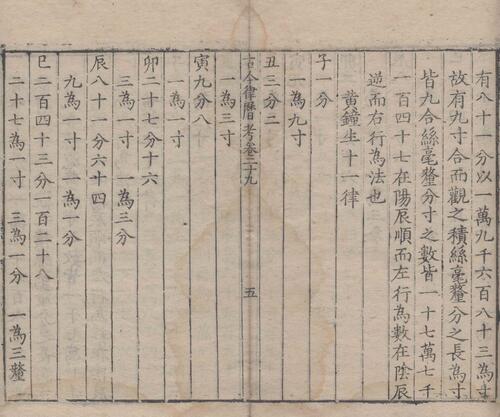 有八十一分以一萬九千六百八十三為寸
故有九寸合而觀之積絲毫釐分之長為寸
皆九合絲毫釐分寸之數皆一十七萬七千
一百四十七在陽辰順而左行為數在陰辰
逆而右行為法也
黄鐘生十一律
子一分
一為九寸
丑三分二
一為三寸
古今律曆考卷二十九
五
寅九分八
一為一寸
卯二十七分十六
三為一寸 一為三分
辰八十一分六十四
九為一寸 一為一分
巳二百四十三分一百二十八
二十七為一寸 三為一分 一為三釐